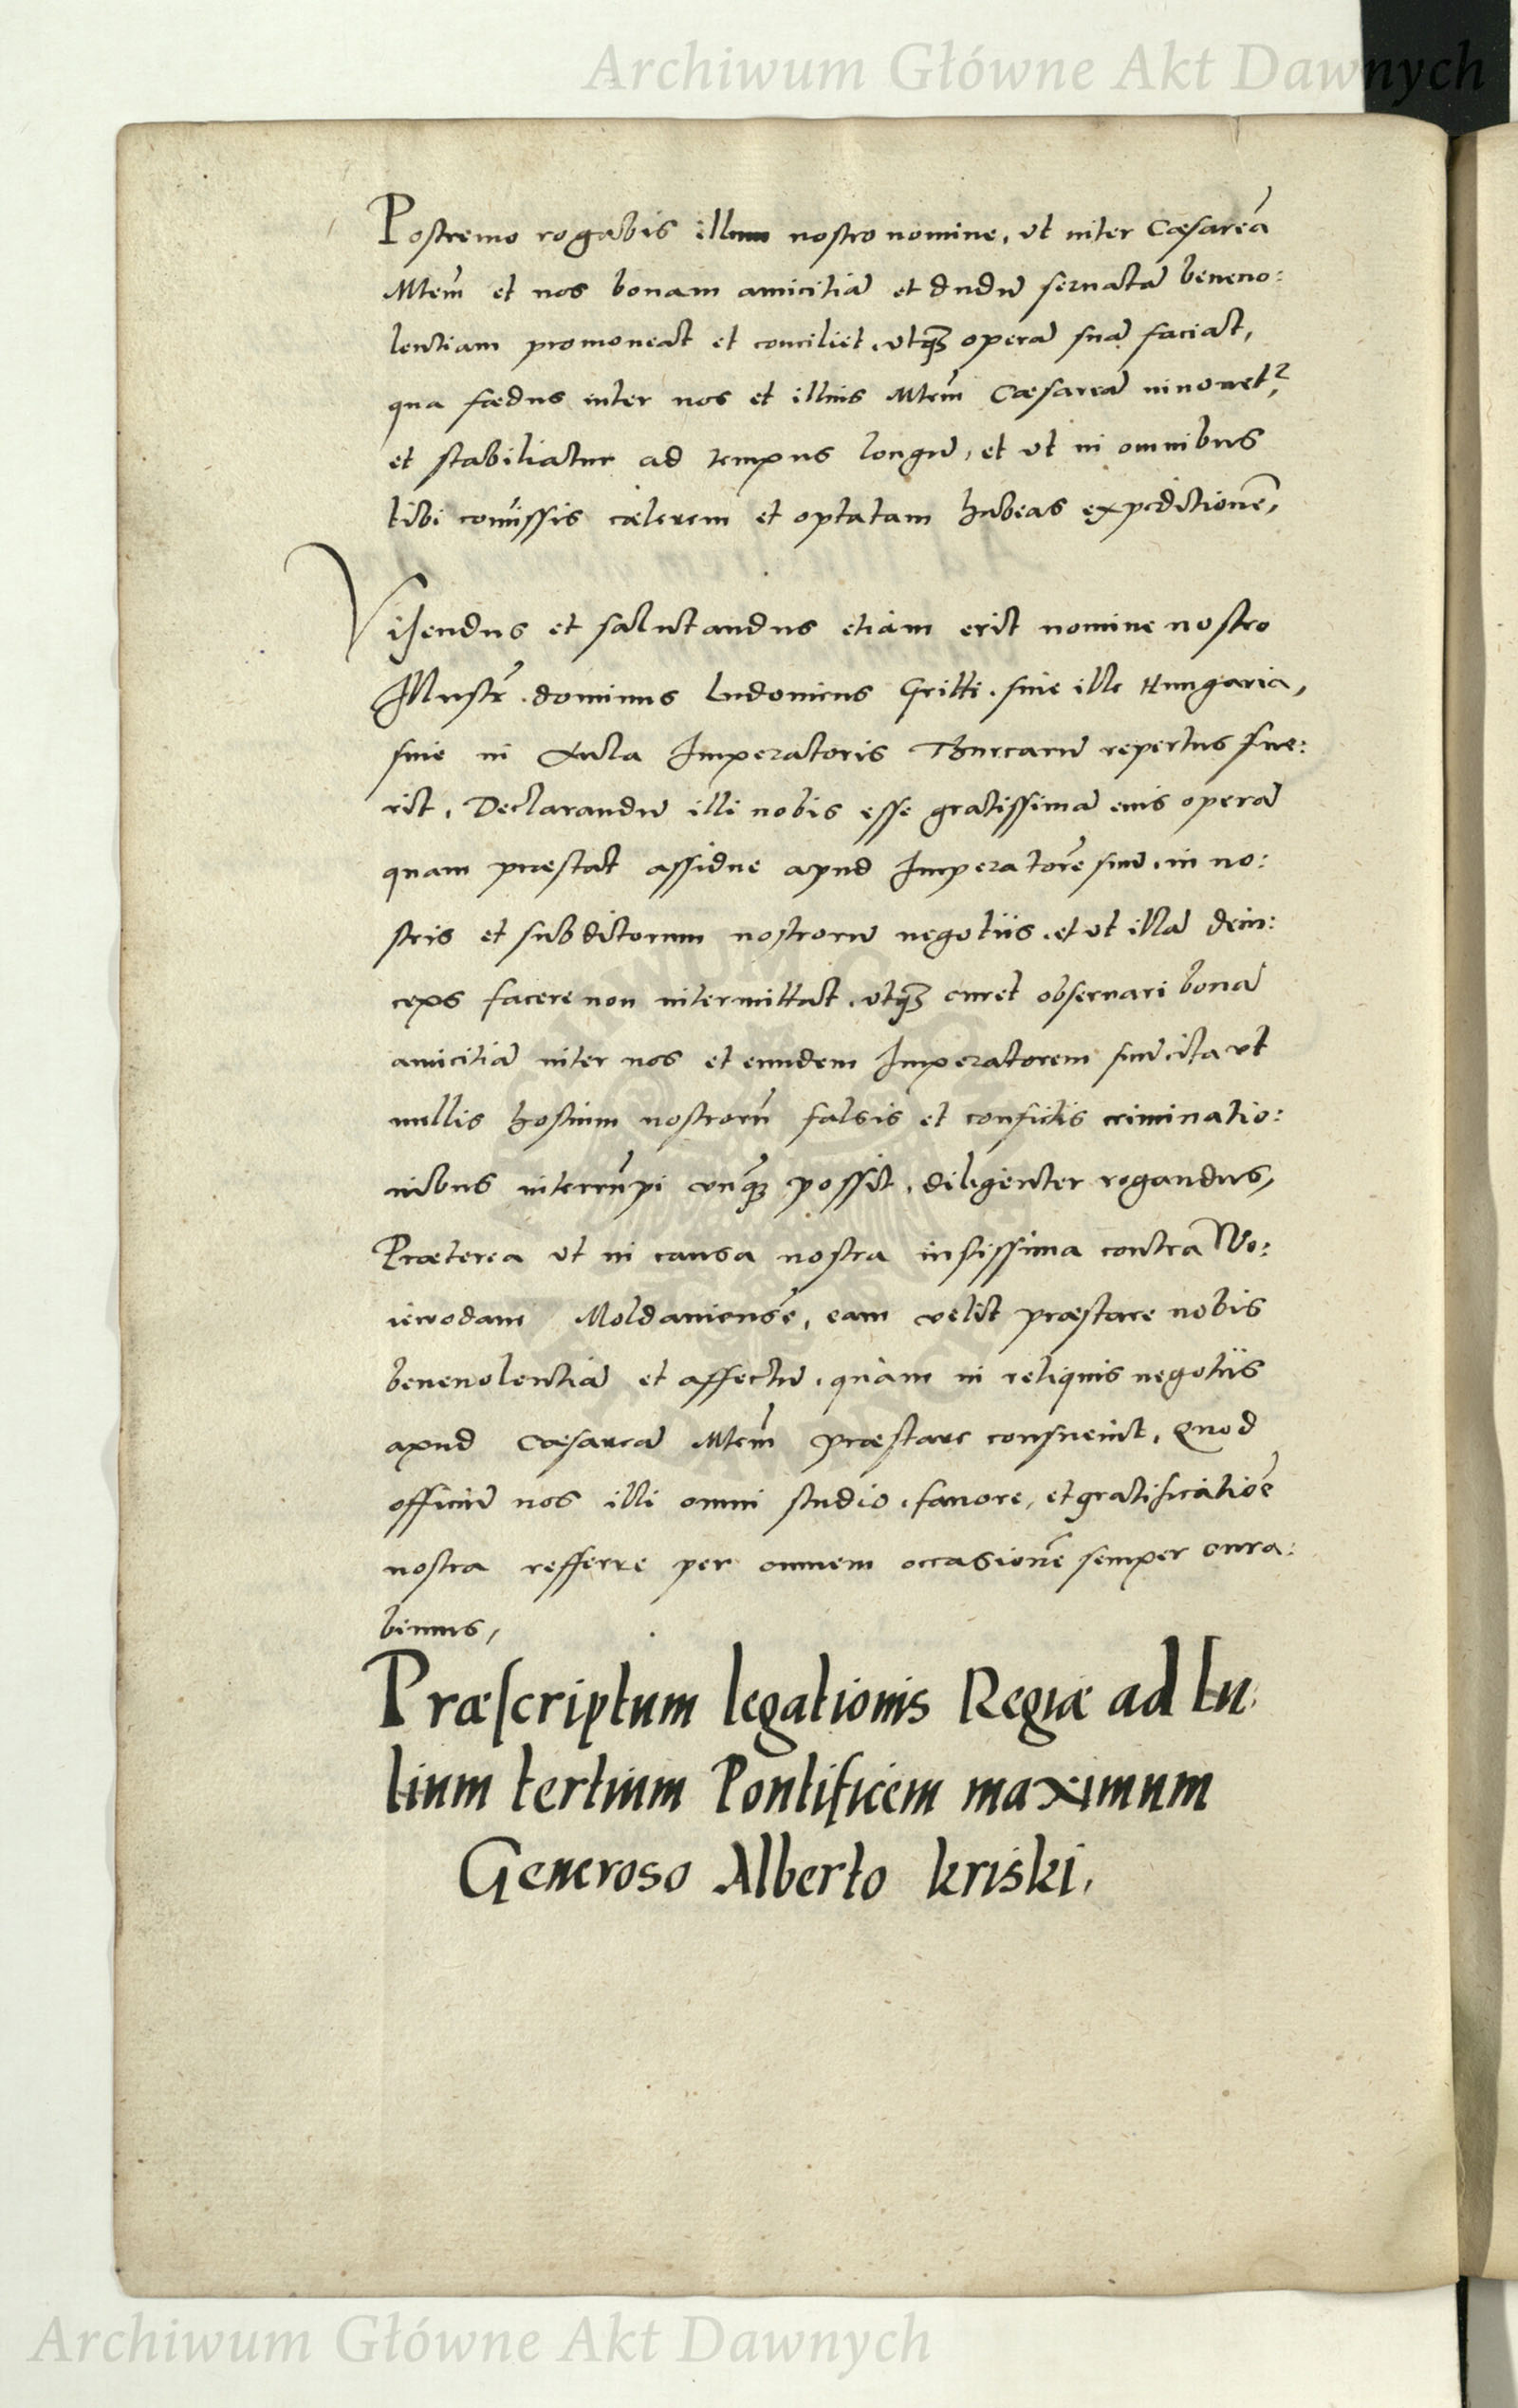 Archiwum Główne Akt Dawnych
Postremo rogabis illum nostro nomine, ut inter Cæsareā
Mtem̄ et nos bonam amicitiā et dudū seruatā beneuo:
lentiam promoueat et conciliet, utq́ꝫ operā suā faciat,
qua fœdus inter nos et illius Mtem̄ Cæsareā innouetʳ
et stabiliatur ad tempus longū, et ut in omnibus
tibi com̄issis cælerem et optatam habeas expeditionē,
Visendus et salutandus etiam erit nomine nostro
Illustr̄ dominus Ludouicus Gritti, siue ille Hungaria,
siue in Aula Imperatoris Thurcarū repertus fue:
rit, Declarandū illi nobis esse gratissimā eius operā
quam præstat assidue apud Imperatorē suū, in no:
stris et subditorum nostrorū negotiis, et ut illā dein:
ceps facere non intermittat, utq́ꝫ curet obseruari bonā
amicitiā inter nos et eundem Imperatorem suū, ita ut
nullis hostium nostrorū falsis et confictis criminatio:
nibus interrūpi unq̄ꝫ possit, diligenter rogandus,
Præterea ut in causa nostra iustissima contra Wo:
iewodam Moldauiensē, eam uelit præstare nobis
beneuolentiā et affectū, quàm in reliquis negotiis
apud Cæsareā Mtem̄ præstare consueuit, Quod
officiū nos illi omni studio, fauore, et gratificatioē
nostra refferre per omnem occasionē semper cura:
bimus,
Præscriptum legationis Regiæ ad Iu,
lium tertium Pontificem maximum
Generoso Alberto kriski,
ARCHIWUM GŁÓWNE AKT DAWNYCH
Archiwum Główne Akt Dawnych